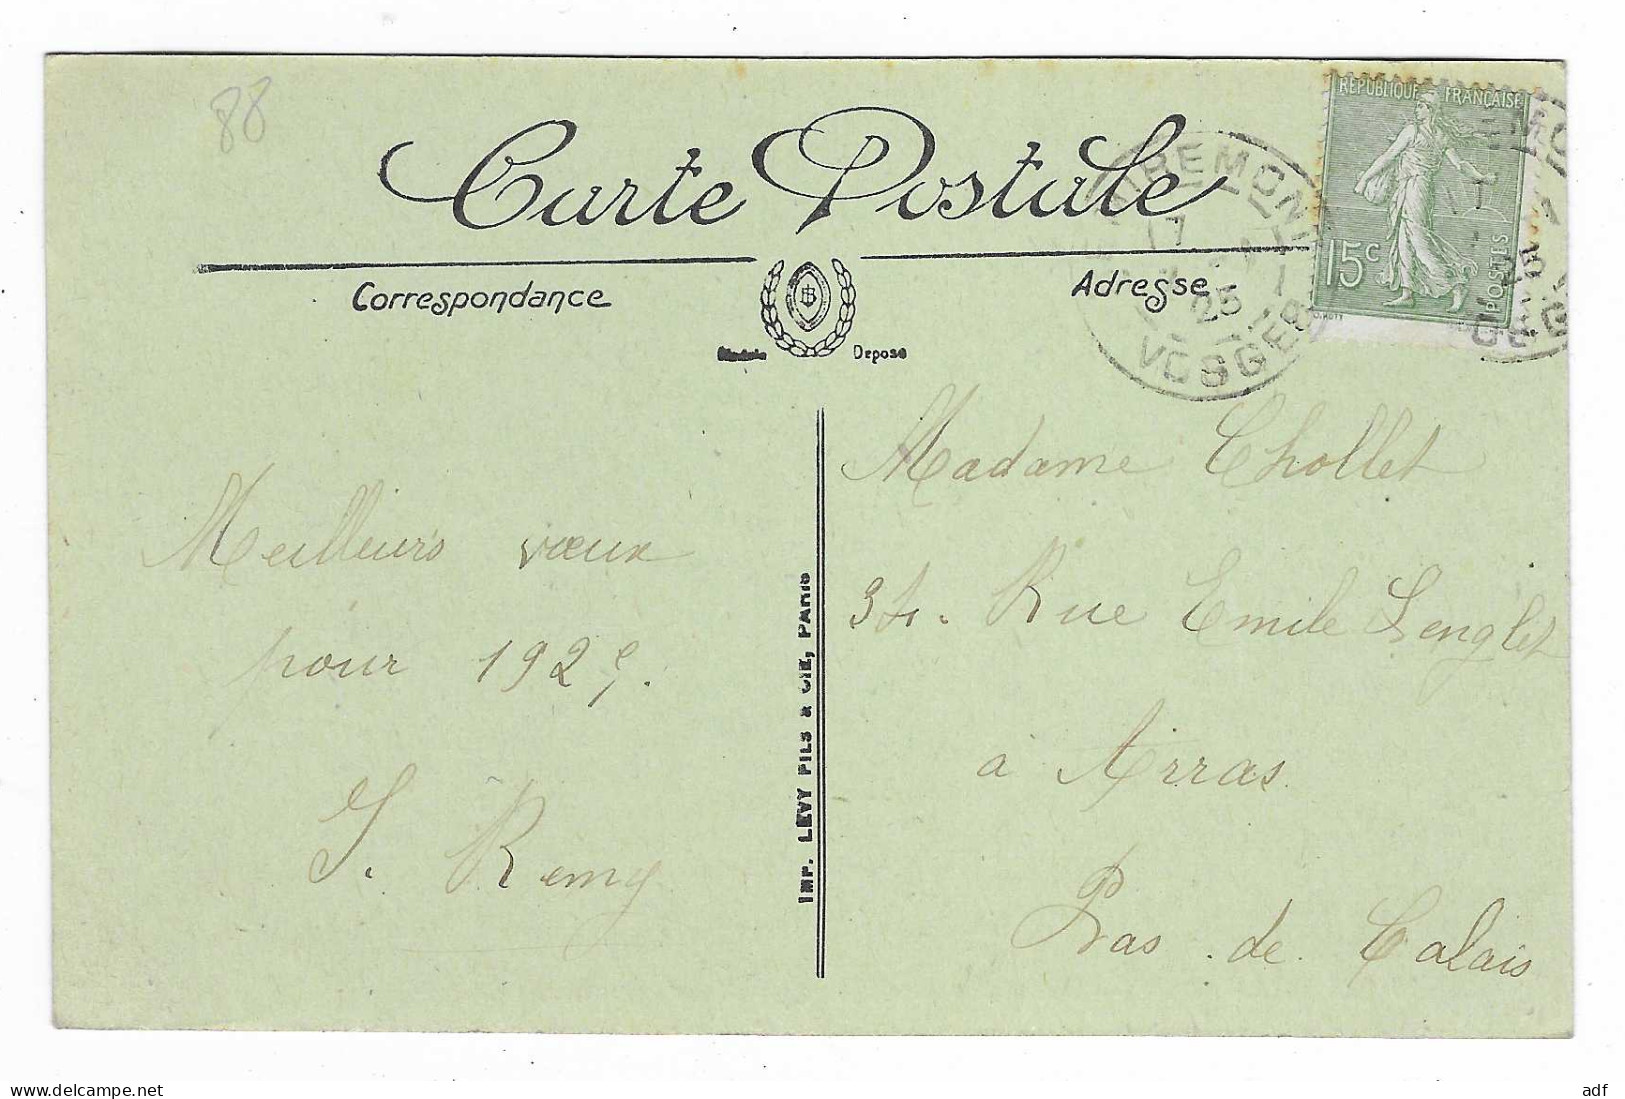 88
Carte Postale
Correspondance
Adresse
Modèle Déposé
RÉPUBLIQUE FRANÇAISE
15c
POSTES
VOSGES
25
Meilleurs vœux
pour 1925.
J. Remy
IMP. LÉVY FILS & CIE, PARIS
Madame Chollet
34. Rue Emile Lenglet
à Arras
Pas. de. Calais
www.delcampe.net
adf